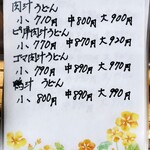 肉汁うどん
小 710円 中800円 大900円
ピリ辛肉汁うどん
小 770円 中870円 大950円
ゴマ肉汁うどん
小 790円 中890円 大970円
鴨汁 うどん
小 800円 中890円 大990円